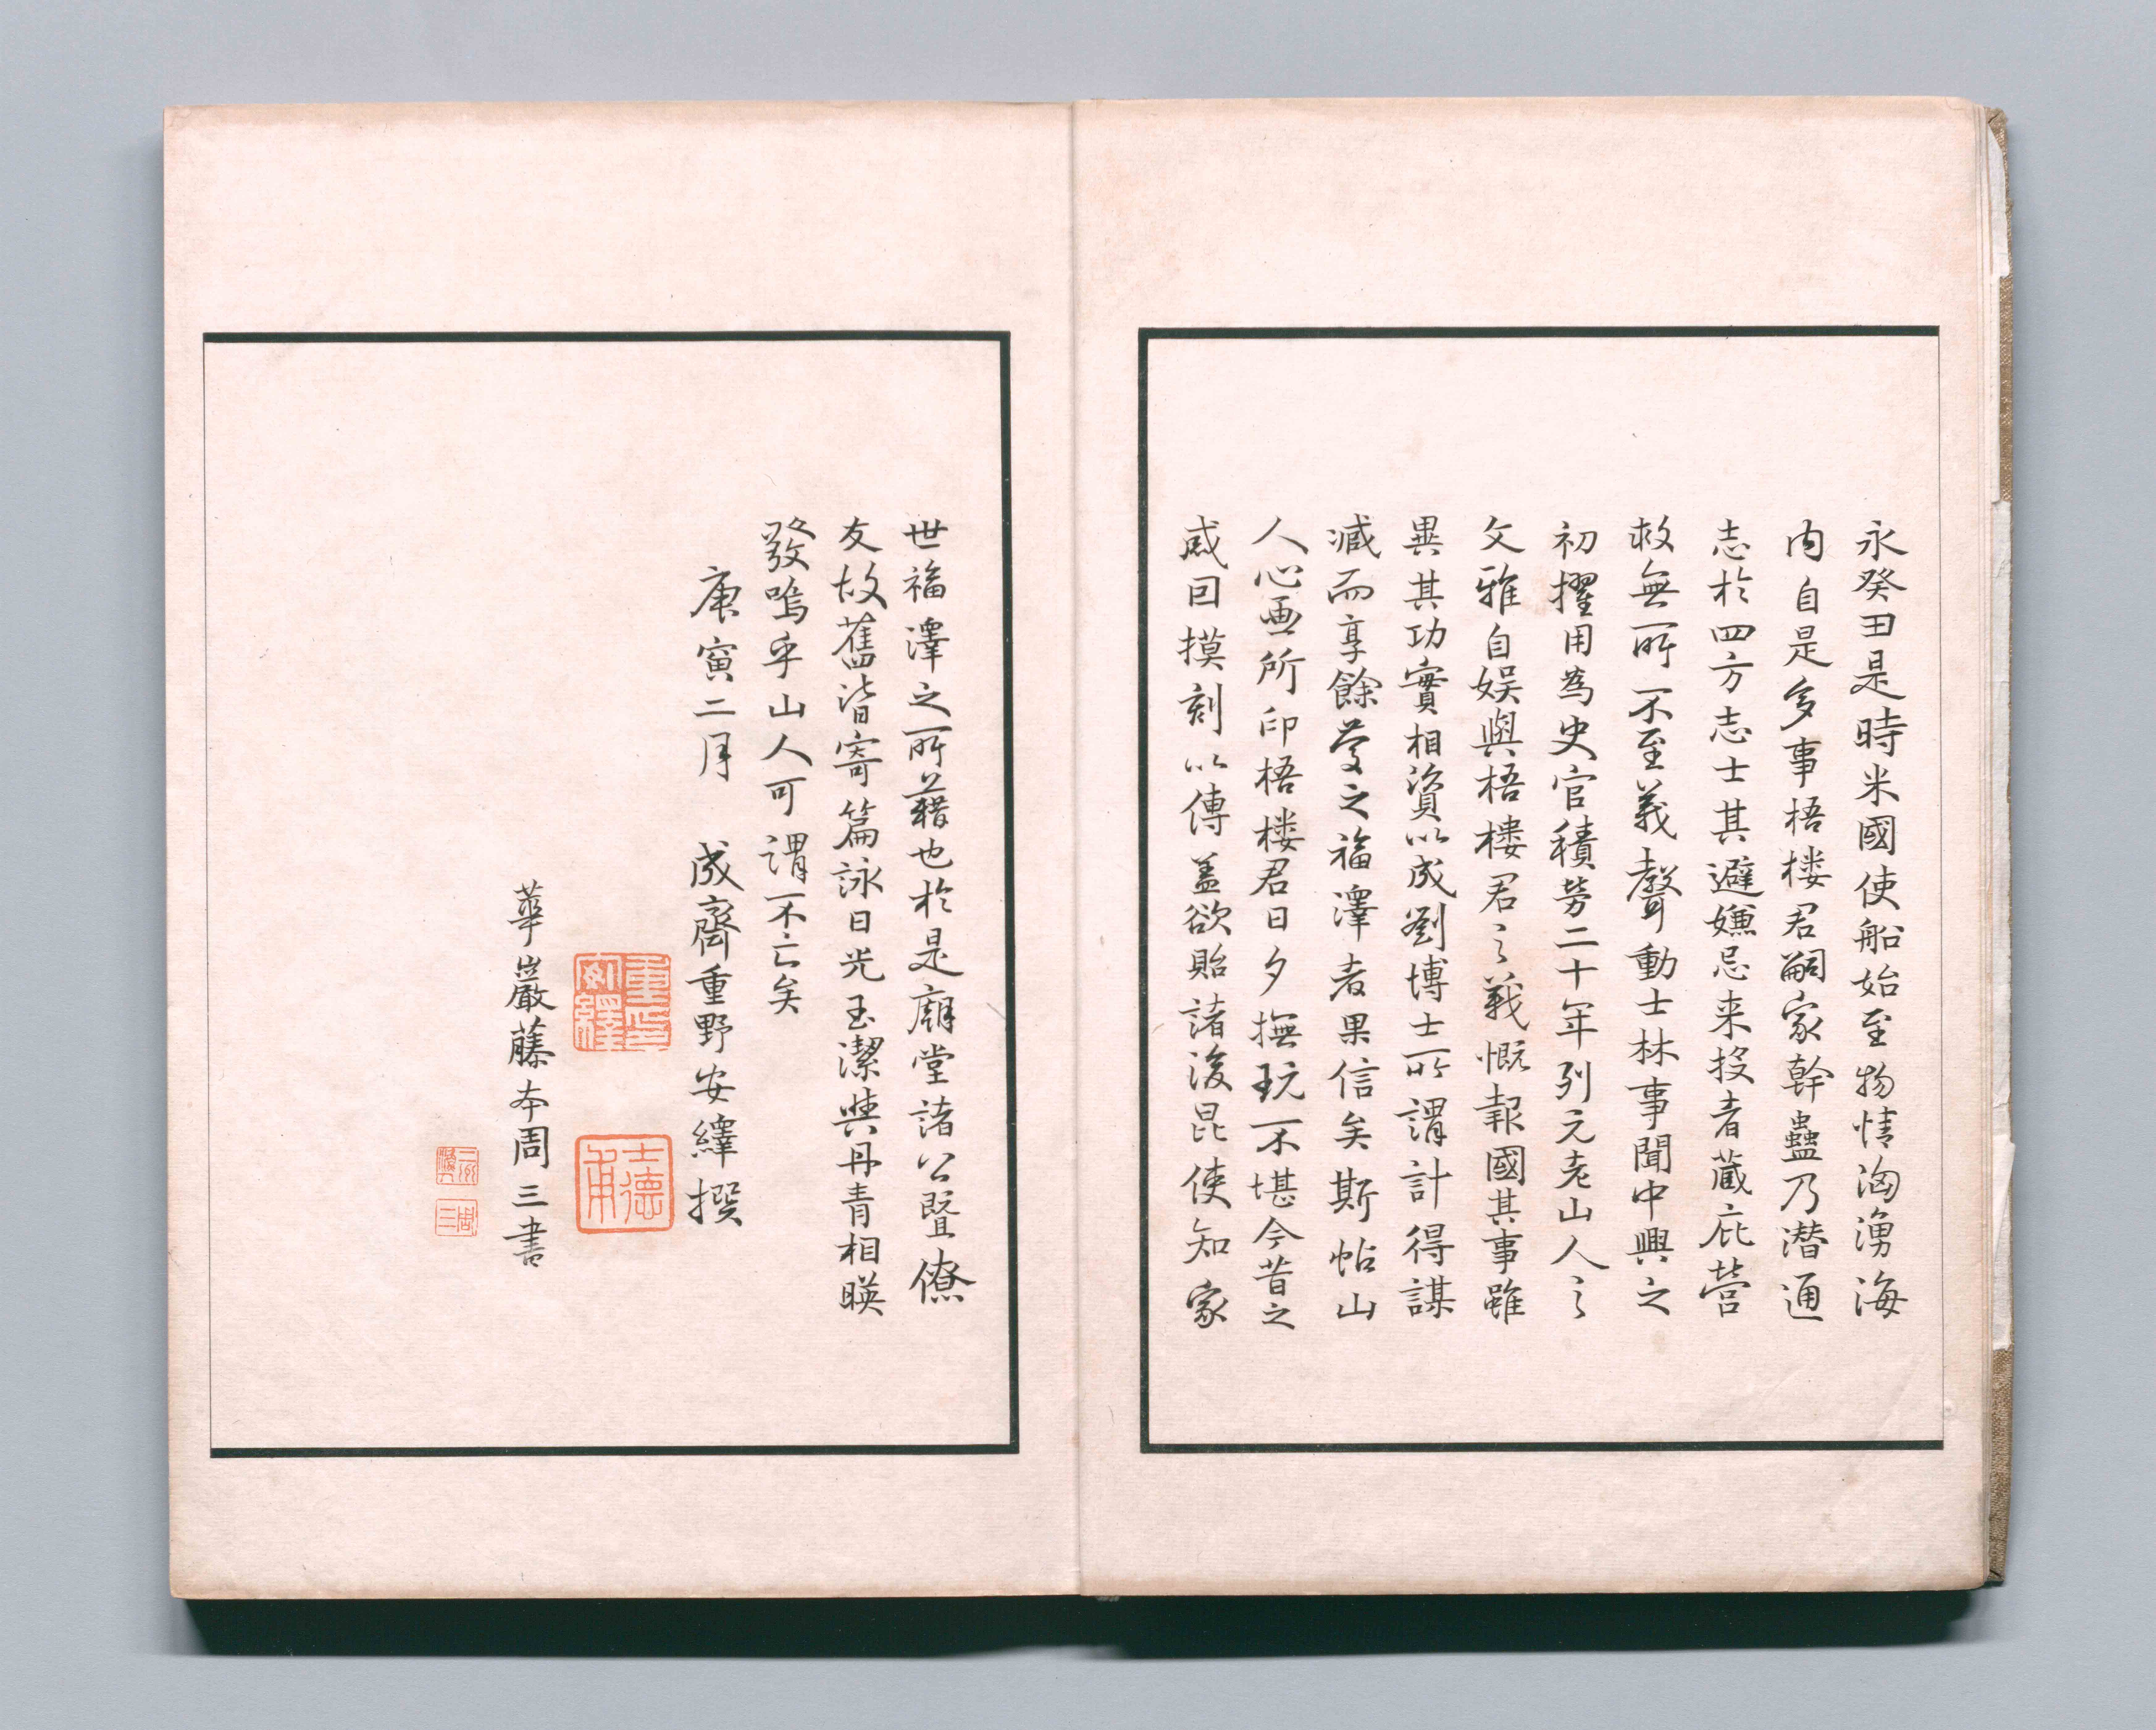 永癸丑是時米國使船始至物情洶湧海
内自是多事梧楼君嗣家幹蠱乃潜通
志於四方志士其避嫌忌来投者藏庇營
救無所不至義聲動士林事聞中興之
初擢用為史官積勞二十年列元老山人之
文雅自娯與梧楼君之義慨報國其事雖
異其功實相資以成劉博士所謂計得謀
減而享餘慶之福澤者果信矣斯帖山
人心画所印梧楼君日夕撫玩不堪今昔之
感因摸刻以傳盖欲貽諸後昆使知家
世福澤之所藉也於是廟堂諸公曁僚
友故舊皆寄篇詠日光玉潔與丹青相暎
發嗚乎山人可謂不亡矣
庚寅二月 成齋重野安繹撰
重野安繹
士德甫
華巖藤本周三書
周三